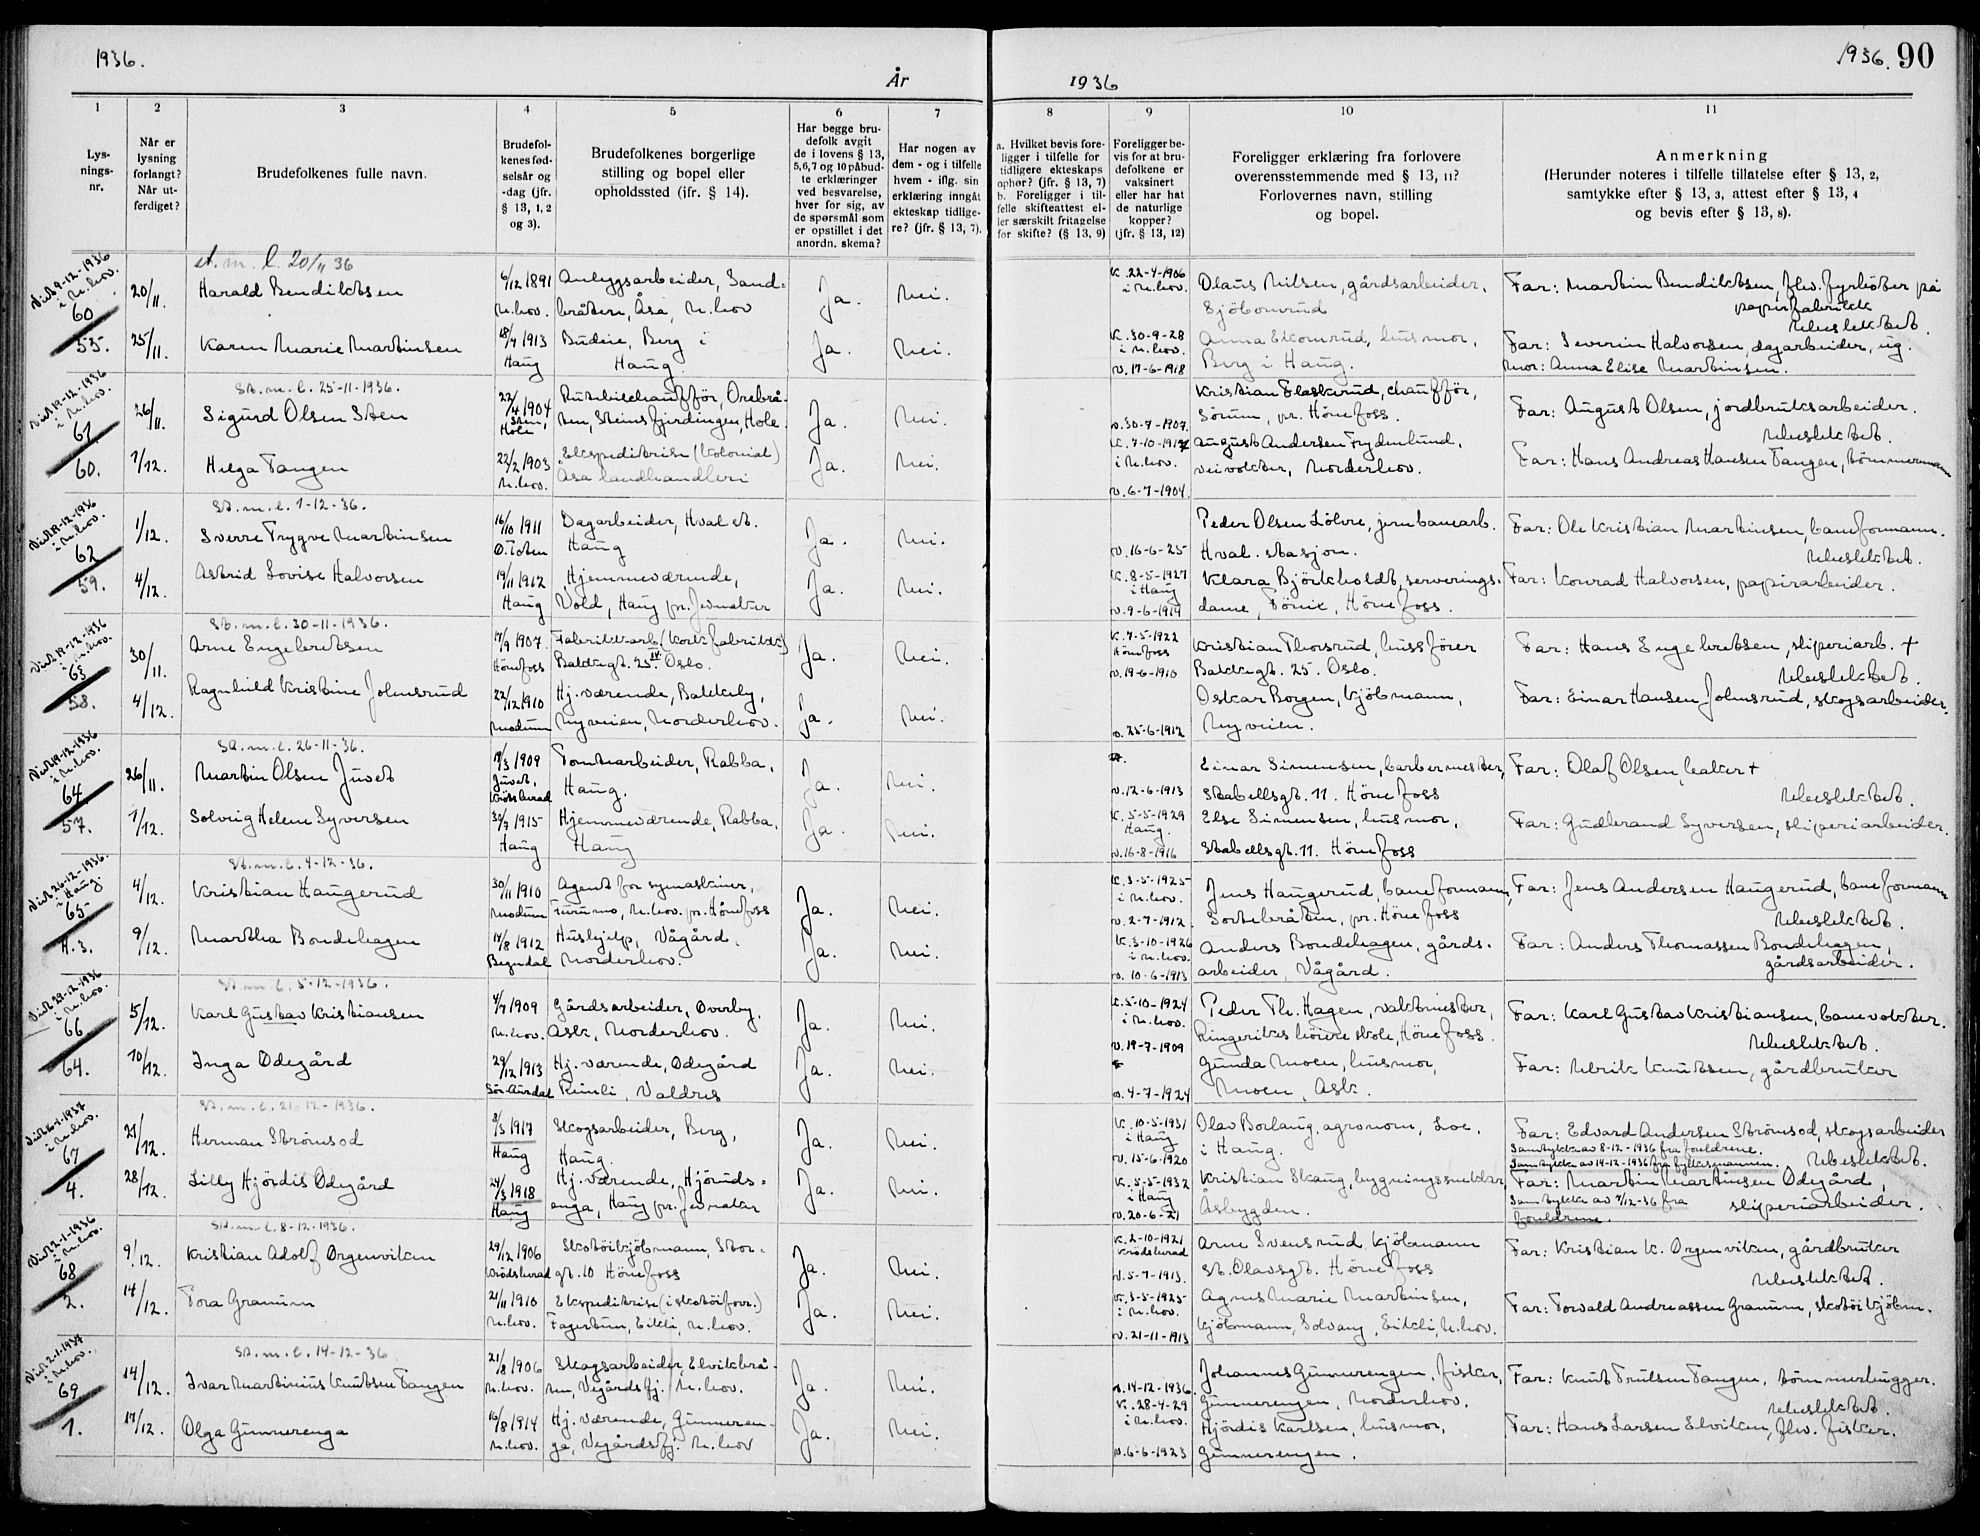 1936.
År
1936
1936. 90
1
2
3
4
5
6
7
8
9
10
11
Lys-
nings-
nr.
Når er
lysning
forlangt?
Når ut-
ferdiget?
Brudefolkenes fulle navn.
Brudefol-
kenes fød-
selsår og
-dag (jfr.
§ 13, 1, 2
og 3).
Brudefolkenes borgerlige
stilling og bopel eller
opholdssted (jfr. § 14).
Har begge bru-
defolk avgit
de i lovens § 13,
5,6,7 og 10 påbud-
te erklæringer
ved besvarelse,
hver for sig, av
de spørsmål som
er opstillet i det
anordn. skema?
Har nogen av
dem - og i tilfelle
hvem - iflg. sin
erklæring inngåt
ekteskap tidlige-
re? (jfr. § 13, 7).
a. Hvilket bevis fore-
ligger i tilfelle for
tidligere ekteskaps
ophør? (jfr. § 13, 7)
b. Foreligger i til-
felle skifteattest el-
ler særskilt fritagelse
for skifte? (§ 13, 9)
Foreligger be-
vis for at bru-
defolkene er
vaksinert
eller har hat
de naturlige
kopper?
(jfr. § 13, 12)
Foreligger erklæring fra forlovere
overensstemmende med § 13, 11?
Forlovernes navn, stilling
og bopel.
Anmerkning
(Herunder noteres i tilfelle tillatelse efter § 13, 2,
samtykke efter § 13, 3, attest efter § 13, 4
og bevis efter § 13, 8).
st. m. l. 20/11 36
Viet 9-12-1936
i N.hov.
60
20/11.
Harald Bendiktsen
6/12 1891
N.hov.
Anleggsarbeider, Sand-
bråten, Åsa, N.hov
Ja.
Nei.
K. 22-4-1906
i N.hov.
Olaus Nilsen, gårdsarbeider,
Sjöbonrud
Far: Martin Bendiktsen, flv. fyrböter på
papirfabrikk
Ubeslektet.
55.
25/11.
Karen Marie Martinsen
1913
Haug
Budeie, Berg i
Haug.
Ja.
Nei.
K. 30-9-28
i N.hov.
v. 17-6-1918
Anna Elsonrud, husmor,
Berg i Haug.
Far: Severin Halvorsen, dagarbeider, ug.
Mor: Anna Elise Martinsen.
St. m. l. 25-11-1936.
Viet 19-12-1936
i N.hov.
61
26/11.
Sigurd Olsen Sten
22/4 1904
Sten,
Hole
Rutebilchauffør, Orebrå-
ten, Steinsfjerdingen, Hole.
Ja.
Nei.
v. 30-7-1907.
Kristian Flaskerud, chauffør,
Sörum, pr. Hönefoss.
Far: August Olsen, jordbruksarbeider.
Ubeslektet.
60.
1/12.
Helga Tangen
22/2 1903
N.hov.
Ekspeditrise (Kolonial)
Åsa landhandleri
Ja.
Nei.
K. 7-10-1917
i N.hov.
v. 6-7-1904.
August Andersen Frydenlund,
veivokter, Norderhov.
Far: Hans Andreas Hansen Tangen, tömmermann
St. m. l. 1-12-36.
Viet 19-12-1936
i N.hov.
62
1/12.
Sverre Trygve Martinsen
16/10 1911
Ö.Toten
Dagarbeider, Hval st.
Haug
Ja.
Nei.
v. 16-6-25
Peder Olsen Löbre, jernbanearb.
Hval. stasjon.
Far: Ole Kristian Martinsen, baneformann.
Ubeslektet.
59.
4/12.
Astrid Lovise Halvorsen
19/11 1912
Haug
Hjemmeværende,
Vold, Haug pr. Jevnaker
Ja.
Nei.
K. 8-5-1927
i Haug
v. 9-6-1914
Klara Björkholdt, serverings-
dame, Fönix, Hönefoss.
Far: Konrad Halvorsen, papirarbeider.
St. m. l. 30-11-1936.
Viet 19-12-1936
i N.hov.
63
30/11.
Arne Engebretsen
17/9 1907
Hönefoss
Fabrikkarb. (Korkfabrikk)
Bakkegt. 25 IV Oslo.
Ja.
Nei.
K. 7-5-1922
Hönefoss
v. 19-6-1910
Kristian Thorsrud, bussförer
Bakkegt. 25. Oslo.
Far: Hans Engebretsen, sliperiarb. +
Ubeslektet.
58.
4/12.
Ragnhild Kristine Johnsrud
22/12 1910
Modum
Hj. værende, Bakkely,
Nyveien, Norderhov.
Ja.
Nei
v. 25-6-1912
Oskar Borgen, Kjöbmann,
Nyveien.
Far: Einar Hansen Johnsrud, skogsarbeider.
St. m. l. 26-11-36.
Viet 19-12-1936
i N.hov.
64.
26/11.
Martin Olsen Juvet
1909
Juvet,
Krödsherad
Tomtearbeider, Rabba,
Haug.
Ja.
Nei.
v. 12-6-1913
Einar Simensen, barbermester,
Stabellsgt. 11. Hönefoss
Far: Olaf Olsen, baker +
Ubeslektet.
57.
1/12.
Solveig Helene Syversen
30/7 1915
Haug
Hjemmeværende, Rabba,
Haug
Ja.
Nei.
K. 5-5-1929
Haug.
v. 16-8-1916
Else Simensen, husmor,
Stabellsgt. 11. Hönefoss
Far: Gudbrand Syversen, sliperiarbeider.
St. m. l. 4-12-36.
Viet 26-12-1936.
i Haug.
65
4/12.
Kristian Haugerud
30/11 1910
Modum
Agent for symaskiner,
Furumo, N.hov. pr. Hönefoss
Ja.
Nei.
K. 3-5-1925
i N.hov.
v. 2-7-1912.
Jens Haugerud, baneformann,
Sortebråten, pr. Hönefoss
Far: Jens Andersen Haugerud, baneformann
Ubeslektet.
H. 3.
9/12.
Martha Bondehagen
14/8 1912
Begndal
Hushjelp, Vågård,
Norderhov.
Ja.
Nei.
K. 3-10-1926
i N.hov.
v. 10-6-1913
Anders Bondehagen, gårds-
arbeider, Vågård.
Far: Anders Thomassen Bondehagen,
gårdsarbeider.
St. m. l. 5-12-1936.
Viet 23-12-1936
i N.hov.
66
5/12.
Karl Gustav Kristiansen
1909
N.hov.
Gårdsarbeider, Overby,
Ask, Norderhov.
Ja.
Nei.
K. 5-10-1924
i N.hov.
v. 19-7-1909
Peder Th. Hagen, vaktmester,
Ringerikes höiere skole, Hönefoss.
Far: Karl Gustav Kristiansen, banevokter.
Ubeslektet.
64.
10/12.
Inga Ödegård
29/12 1913
Sör-Aurdal
Hj. værende, Ödegård
Reinli, Valdres
Ja.
Nei.
v. 4-7-1924
Gunda Moen, husmor,
Moen, Ask.
Far: Ulrik Knutsen, gårdbruker
St. m. l. 21-12-1936.
Viet 6-1-1937
i N.hov.
67
21/12.
Herman Strömsod
1917
Haug
Skogsarbeider, Berg,
Haug.
Ja.
Nei.
K. 10-5-1931
i Haug
v. 15-6-1920
Olav Borlaug, agronom, Loe.
i Haug.
Far: Edvard Andersen Strömsod, skogsarbeider
Samtykke av 8-12-1936 fra foreldrene.
Samtykke av 14-12-1936 fra fylkesmannen.
Ubeslektet.
4.
28/12.
Lilly Hjördis Ödegård
24/3 1918
Haug
Hj. værende, Hjörnds-
enga, Haug pr. Jevnaker
Ja.
Nei.
K. 5-5-1932
i Haug
v. 20-6-21
Kristian Skaug, bygningssnekker
Åsbygden.
Far: Martin Martinsen Ödegård,
Samtykke av 7/12-36 fra
foreldrene.
sliperiarbeider.
St. m. l. 8-12-1936.
Viet 2-1-1936
i N.hov.
68
9/12.
Kristian Adolf Ørgenviken
29/12 1906
Krödsherad
Skotöikjöbmann, Stor-
gt. 10 Hönefoss
Ja.
Nei.
K. 2-10-1921
Krödsherad
v. 5-7-1913.
Arne Svensrud, Kjöbmann
St. Olavsgt. Hönefoss
Far: Kristian K. Ørgenviken, gårdbruker
Ubeslektet.
2.
14/12.
Tora Granum
21/11 1910
N.hov.
Ekspeditrise (i skotöiforr.)
Fagertun, Eikli, N.hov.
Ja.
Nei.
K. 3-5-1925
i N.hov.
v. 21-11-1913
Agnes Marie Martinsen,
Kjöbmann, Solvang, Eikli, N.hov.
Far: Torvald Andreassen Granum, skotöikjöbm.
St. m. l. 14-12-36
Viet 2-1-1937
i N.hov.
69
14/12.
Ivar Martinius Knutsen Tangen
21/8 1906
N.hov.
Skogsarbeider, Elvikbrå-
ten, Vegårdsfj. N.hov.
Ja.
Nei.
14-12-1936.
Johannes Gunnerengen, fisker,
Gunnerengen, Norderhov.
Far: Knut Trulsen Tangen, tömmerhugger.
Ubeslektet.
1.
17/12.
Olga Gunnerenga
16/8 1914
N.hov.
Hj. værende, Gunneren-
ga, Vegårdsfj. N.hov
Ja.
Nei.
K. 28-4-29
i N.hov.
v. 6-6-1923
Hjördis Karlsen, husmor,
Gunnerengen.
Far: Hans Larsen Elviken, flv. fisker.